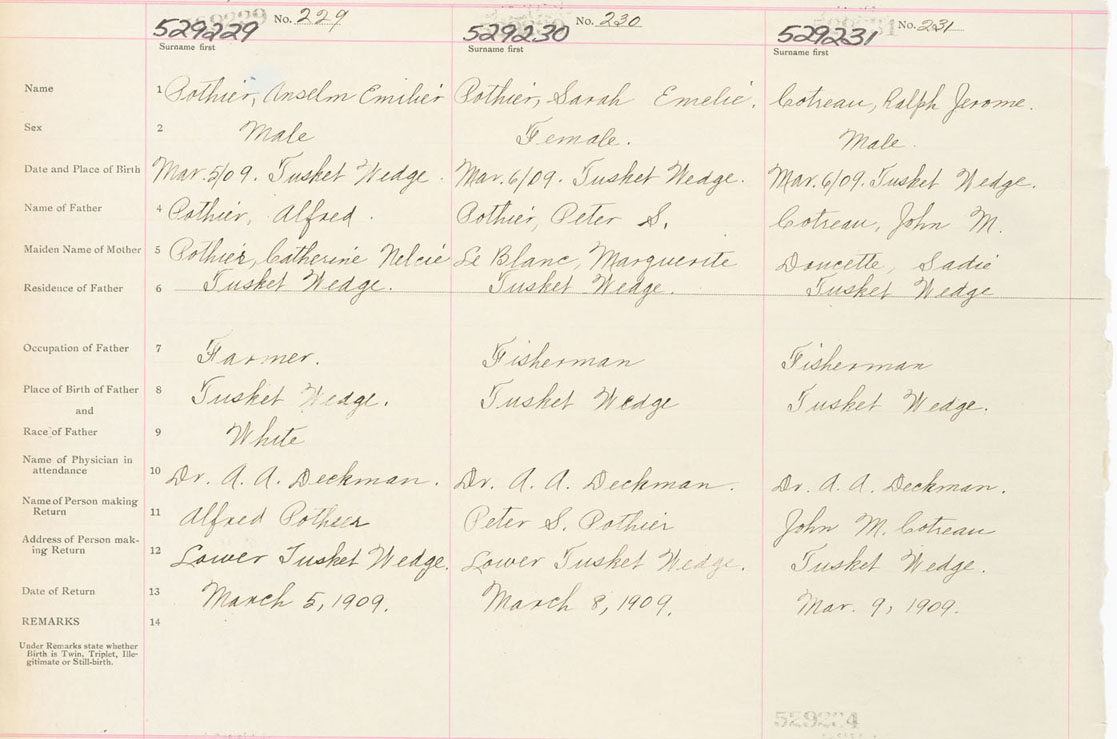 No. 229 No. 230 No. 231
529229 529230 529231
Surname first Surname first Surname first
Name 1 Pothier, Anselm Emilier Pothier, Sarah Emelie. Cotreau, Ralph Jerome.
Sex 2 Male Female. Male.
Date and Place of Birth 3 Mar. 5/09. Tusket Wedge. Mar. 6/09. Tusket Wedge. Mar. 6/09. Tusket Wedge.
Name of Father 4 Pothier, Alfred. Pothier, Peter S. Cotreau, John M.
Maiden Name of Mother 5 Pothier, Catherine Nelcie Le Blanc, Marguerite Doucette, Sadie
Residence of Father 6 Tusket Wedge. Tusket Wedge. Tusket Wedge
Occupation of Father 7 Farmer. Fisherman Fisherman
Place of Birth of Father 8 Tusket Wedge. Tusket Wedge Tusket Wedge.
and
Race of Father 9 White
Name of Physician in
attendance 10 Dr. A. A. Deckman. Dr. A. A. Deckman. Dr. A. A. Deckman.
Name of Person making
Return 11 Alfred Pothier Peter S. Pothier John M. Cotreau
Address of Person mak-
ing Return 12 Lower Tusket Wedge. Lower Tusket Wedge. Tusket Wedge.
Date of Return 13 March 5, 1909. March 8, 1909. Mar. 9, 1909.
REMARKS 14
Under Remarks state whether
Birth is Twin, Triplet, Ille-
gitimate or Still-birth.